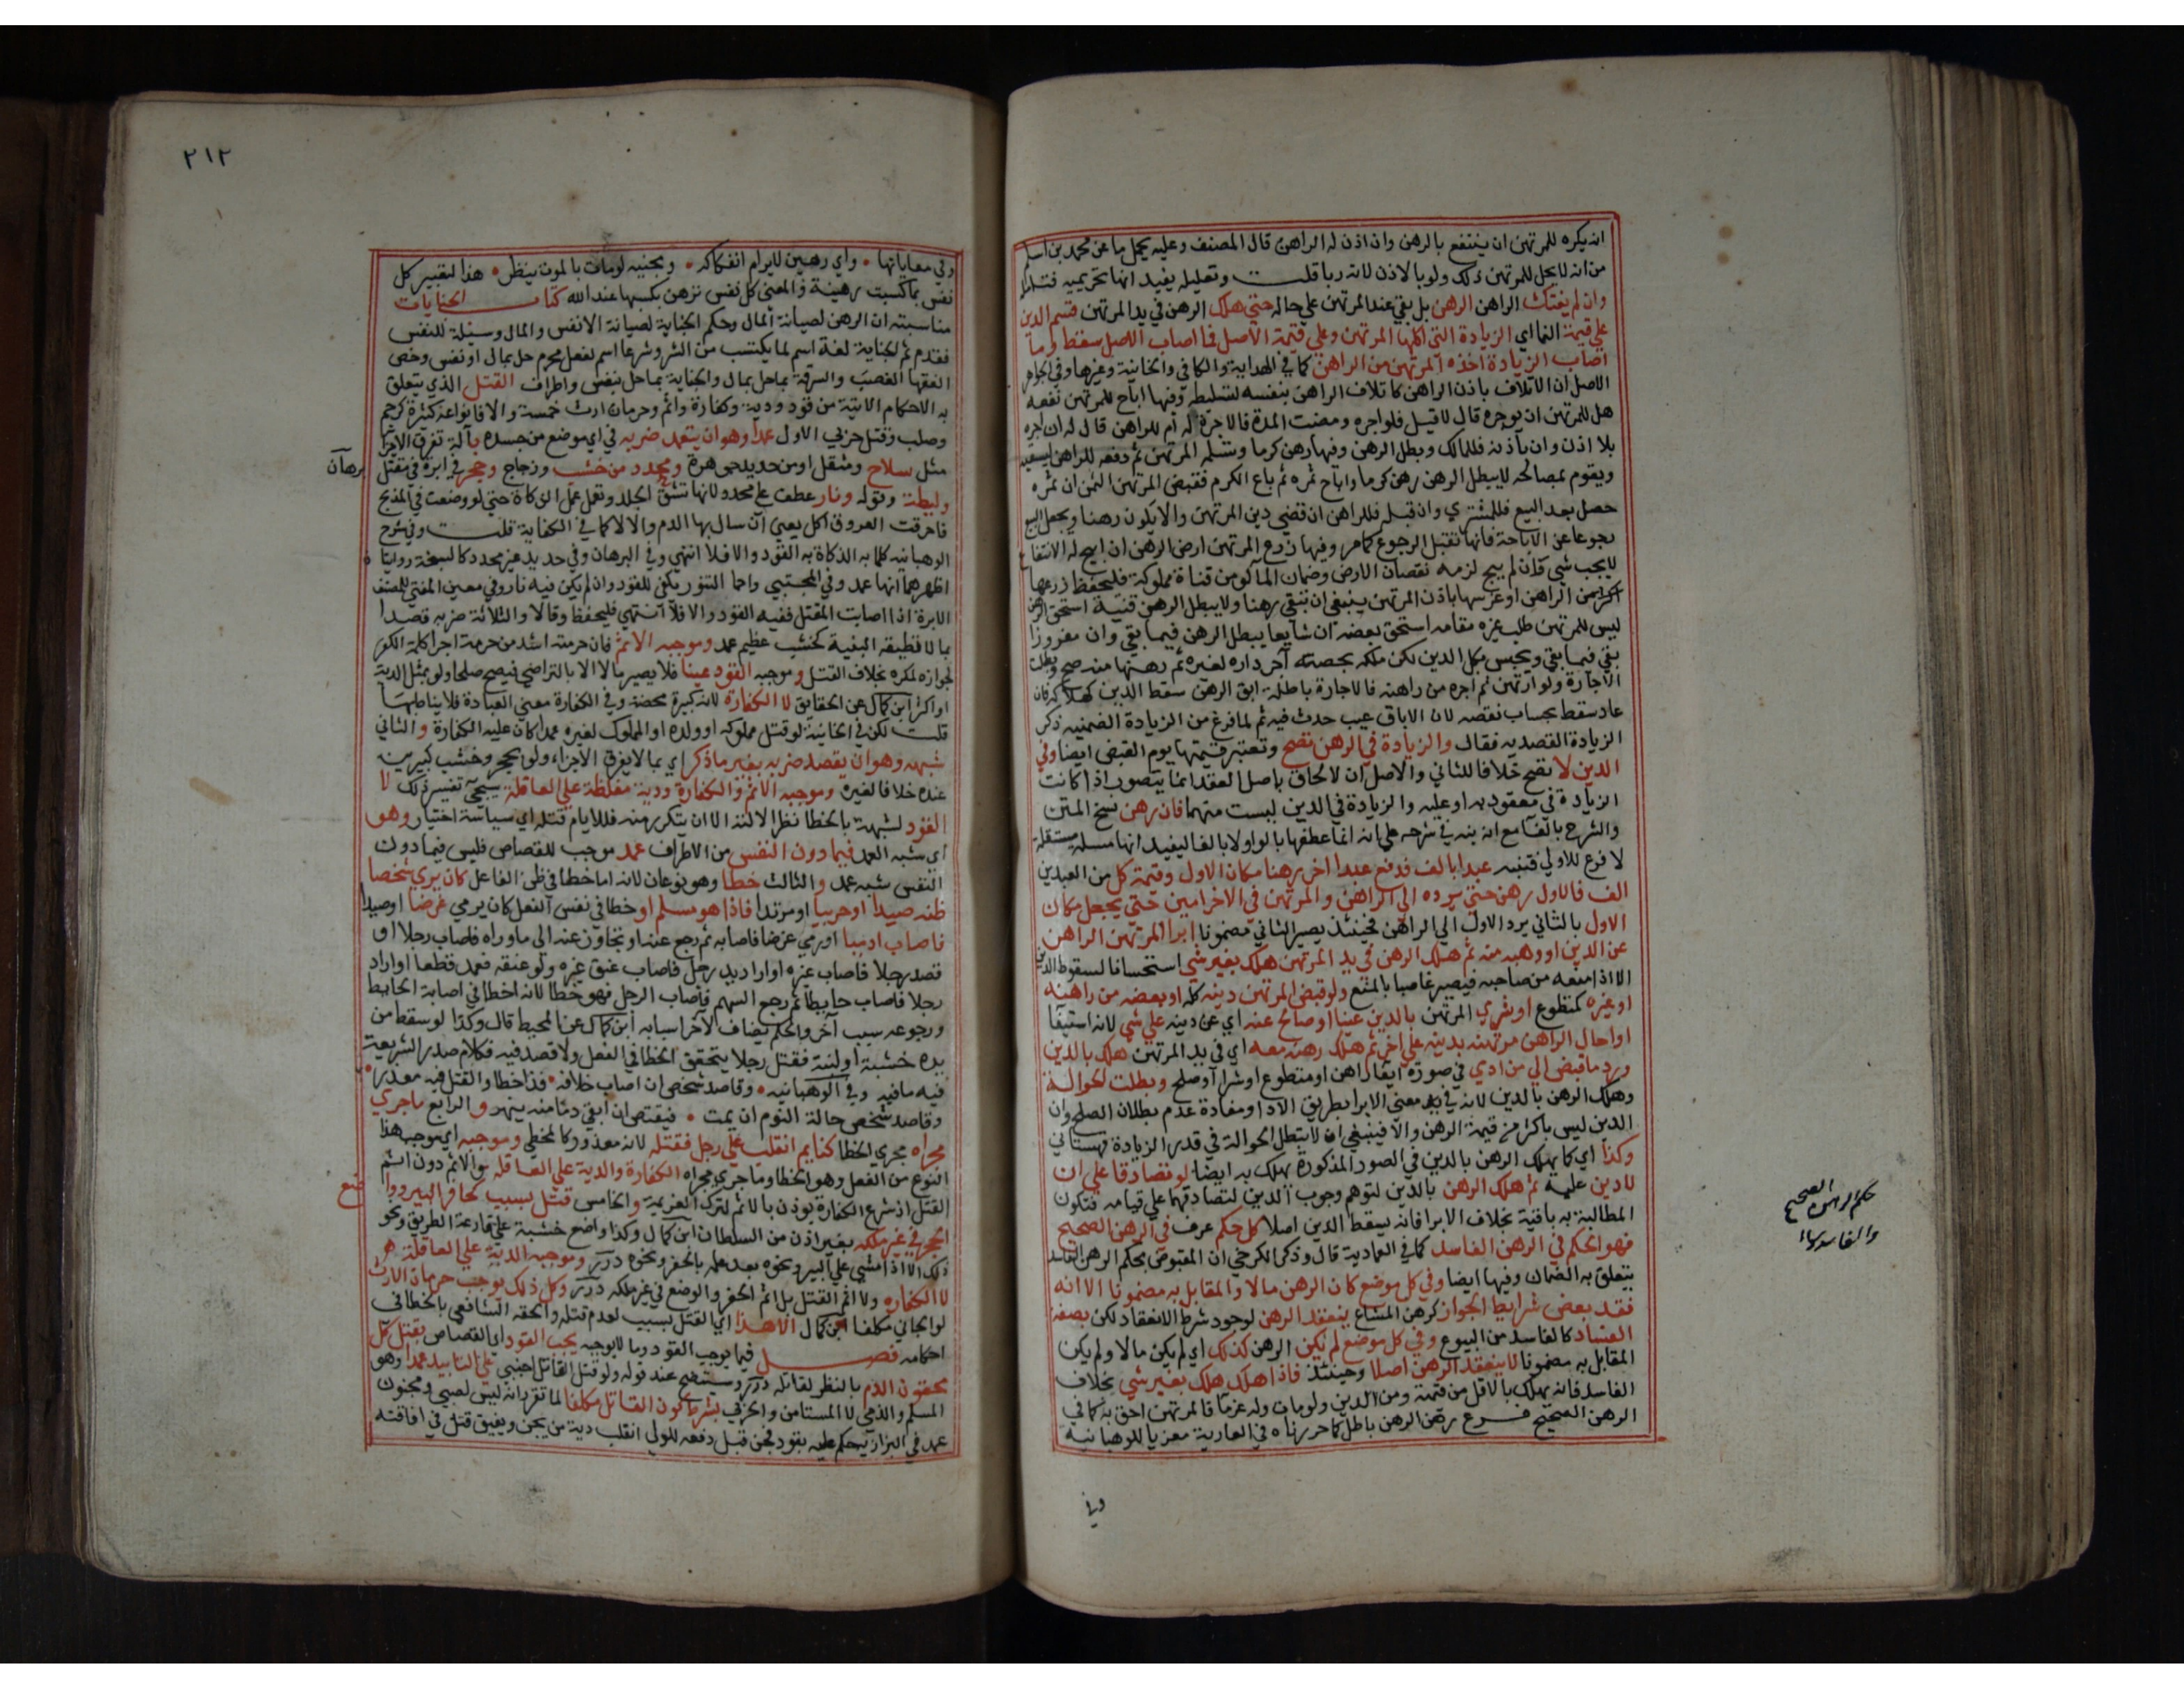 انه يكره للمرتهن ان ينتفع بالرهن وان اذن له الراهن قال المصنف وعليه يحمل ما عن محمد بن اسلم
من انه لا يحل للمرتهن ذلك ولو بالاذن لانه ربا قلت وتعليله يفيد انها تحريمية فتامله
وان لم يفتك الراهن الرهن بل بقي عند المرتهن علي حاله حتي هلك الرهن في يد المرتهن قسم الدين
علي قيمة النما اي الزيادة التي اكلها المرتهن وعلي قيمة الاصل فما اصاب الاصل سقط وما
اصاب الزيادة اخذه المرتهن من الراهن كما في الهداية والكافي والخانية وغيرها وفي الجواهر
الاصل ان الاتلاف باذن الراهن كاتلاف الراهن بنفسه لتسليطه وفيها اباح للمرتهن نفعه
هل للمرتهن ان يوجره قال لا قيل فلو اجره ومضت المدة فالاجرة له ام للراهن قال له ان اجره
بلا اذن وان باذنه فللمالك وبطل الرهن وفيها رهن كرما وتسلمه المرتهن ثم دفعه للراهن ليسقيه
ويقوم بمصالحه لا يبطل الرهن رهن كرما واباح ثمره ثم باع الكرم فقبض المرتهن الثمن ان ثمره
حصل بعد البيع فللمشتري وان قبله فللراهن ان قضي دين المرتهن والا يكون رهنا ويجعل البيع
رجوعا عن الاباحة فانها تقبل الرجوع كما مر وفيها زرع المرتهن ارض الرهن ان ابيح له الانتفاع
لا يجب شي فان لم يبح لزمه نقصان الارض وضمان الما لو من قناة مملوكة فليحفظ زرعها
الراهن او غرسها باذن المرتهن ينبغي ان تبقي رهنا ولا يبطل الرهن قنية استحق الرهن
ليس للمرتهن طلب غيره مقامه استحق بعضه ان شايعا يبطل الرهن فيما بقي وان مفروزا
بقي فيما بقي ويحبس بكل الدين لكن هلكه بحصته اجر داره لغيره ثم رهنها منه صح وبطلت
الاجارة ولو ارتهن ثم اجره من راهنه فالاجارة باطلة ابق الرهن سقط الدين كهلاكه فان
عاد سقط بحساب نقصه لان الاباق عيب حدث فيه ثم لما فرغ من الزيادة الضمنيه ذكر
الزيادة القصديه فقال والزيادة في الرهن تصح وتعتبر قيمتها يوم القبض ايضا وفي
الدين لا تصح خلافا للثاني والاصل ان الالحاق باصل العقد انما يتصور اذا كانت
الزيادة في معقود به او عليه والزيادة في الدين ليست منهما فان رهن نسخ المتن
والشرح بالفا مع انه بنه في شرحه علي انه انما عطفها بالواو لا بالفا ليفيد انها مسلة مستقلة
لا فرع للاولي فتنبه عبدا بالف فدفع عبدا اخر رهنا مكان الاول وقيمة كل من العبدين
الف فالاول رهن حتي يرده الي الراهن والمرتهن في الاخر امين حتي يجعله مكان
الاول بالثاني يرد الاول الي الراهن فحينئذ يصير الثاني مضمونا ابرا المرتهن الراهن
عن الدين او وهبه منه ثم هلك الرهن في يد المرتهن هلك بغير شي استحسانا لسقوط الدين
الا اذا منعه من صاحبه فيصير غاصبا بالمنع ولو قبض المرتهن دينه كله او بعضه من راهنه
او غيره كمتطوع او شري المرتهن بالدين عينا او صالح عنه اي عن دينه علي شي لانه استيفا
او احال الراهن مرتهنه بدينه علي اخر ثم هلك رهنه معه اي في يد المرتهن هلك بالدين
ورد ما قبض الي من ادي في صورة ايفا راهن او متطوع او شرا او صلح وبطلت الحوالة
وهلك الرهن بالدين لانه في معني الابرا بطريق الادا ومفاده عدم بطلان الصلح وان
الدين ليس باكثر من قيمة الرهن والا فينبغي ان لا تبطل الحوالة في قدر الزيادة قهستاني
وكذا اي كما يهلك الرهن بالدين في الصور المذكورة يهلك به ايضا لو تصادقا علي ان
لا دين عليه ثم هلك الرهن بالدين لتوهم وجوب الدين لتصادقهما علي قيامه فتكون
المطالبة به باقية بخلاف الابرا فانه يسقط الدين اصلا كل حكم عرف في الرهن الصحيح
فهو الحكم في الرهن الفاسد كما في العمادية قال وذكر الكرخي ان المقبوض بحكم الرهن الفاسد
يتعلق به الضمان وفيها ايضا وفي كل موضع كان الرهن مالا والمقابل به مضمونا الا انه
فقد بعض شرايط الجواز كرهن المشاع ينعقد الرهن لوجود شرط الانعقاد لكن بصفة
الفساد كالفاسد من البيوع وفي كل موضع لم يكن الرهن كذلك اي لم يكن مالا ولم يكن
المقابل به مضمونا لا ينعقد الرهن اصلا وحينئذ فاذا هلك هلك بغير شي بخلاف
الفاسد فانه يهلك بالاقل من قيمة ومن الدين ولو مات وله غرما فالمرتهن احق به كما في
الرهن الصحيح فرع رهن الرهن باطل كما حررناه في العارية معزيا للوهبانية
وفي
حكم الرهن الصحيح
والفاسد سواء
٢١٢
وفي معاياتها واي رهين لا يرام انفكاكه ويجنيه لو مات بالموت ينظر هذا ليقيس كل
نفس بما كسبت رهينة والمعني كل نفس ترهن بكسبها عند الله كتاب الجنايات
مناسبته ان الرهن لصيانة المال وحكم الجناية لصيانة الانفس والمال وسيلة للنفس
فقدم ثم الجناية لغة اسم لما يكتسب من الشر وشرعا اسم لفعل محرم حل بمال او نفس وخص
الفقها الغصب والسرقة بما حل بمال والجناية بما حل بنفس واطراف القتل الذي يتعلق
به الاحكام الاتية من قود ودية وكفارة واثم وحرمان ارث خمسة والا فانواعه كثيرة كرجم
وصلب وقتل حربي الاول عمدا وهو ان يتعمد ضربه في اي موضع من جسده بآلة تفرق الاجزا
مثل سلاح ومثقل او من حديد جوهرة ومحدد من خشب وزجاج وحجر في ابرة في مقتل
برهان
وليطة وقوله ونار عطف علي محدد لانها تشق الجلد وتعمل عمل الزكاة حتي لو وضعت في المذبح
فاحرقت العروق اكل يعني ان سال بها الدم والا لا كما في الكفاية قلت وفي شرح
الوهبانية كل ما به الذكاة به القود والا فلا انتهي وفي البرهان وفي حديد غير محدد كالسنجة روايتان
اظهرهما انها عمد وفي المجتبي واحما التنور يكفي للقود وان لم يكن فيه نار وفي معين المفتي للمصنف
الابرة اذا اصابت المقتل ففيه القود والا فلا انتهي فليحفظ وقالا والثلاثة ضربه قصدا
بما لا تطيقه البنية كخشب عظيم عمد وموجبه الاثم فان حرمته اشد من حرمة اجرا كلمة الكفر
لجوازه لمكره بخلاف القتل وموجبه القود عينا فلا يصير مالا الا بالتراضي فيصح صلحا ولو بمثل الدية
او اكثر ابن كمال عن الحقايق لا الكفارة لانه كبيرة محضة وفي الكفارة معني العبادة فلا يناط بها
قلت لكن في الخانية لو قتل مملوكه او ولده او المملوك لغيره عمدا كان عليه الكفارة والثاني
شبهه وهو ان يقصد ضربه بغير ما ذكر اي بما لا يفرق الاجزاء ولو بحجر وخشب كبيرين
عنده خلافا لغيره وموجبه الاثم والكفارة ودية مغلظة علي العاقلة سيجي تفسير ذلك لا
القود لشبهه بالخطا نظرا لالته الا ان يتكرر منه فللامام قتله اي سياسة اختيار وهو
اي شبه العمد فيما دون النفس من الاطراف عمد موجب للقصاص فليس فيما دون
النفس شبه عمد والثالث خطا وهو نوعان لانه اما خطا في ظن الفاعل كان يرمي شخصا
ظنه صيدا او حربيا او مرتدا فاذا هو مسلم او خطا في نفس الفعل كان يرمي غرضا او صيدا
فاصاب ادميا او رمي غرضا فاصابه ثم رجع عنه او تجاوز عنه الي ما وراه فاصاب رجلا او
قصد رجلا فاصاب غيره او اراد يد رجل فاصاب عنق غيره ولو عنقه فعمد قطعا او اراد
رجلا فاصاب حايطا ثم رجع السهم فاصاب الرجل فهو خطا لانه اخطا في اصابة الحايط
ورجوعه سبب اخر والحكم يضاف لاخر اسبابه ابن كمال عن المحيط قال وكذا لو سقط من
يده خشبة او لبنة فقتل رجلا يتحقق الخطا في الفعل ولا قصد فيه فكلام صدر الشريعة
فيه ما فيه وفي الوهبانيه وقاصد شخص ان اصاب خلافه فذا خطا والقتل فيه معذر
وقاصد شخص حالة النوم ان يمت فيقتص ان ابقي دما منه ينهر والرابع ما جري
مجراه مجري الخطا كنايم انقلب علي رجل فقتله لانه معذور كالمخطي وموجبه اي موجب هذا
النوع من الفعل وهو الخطا وما جري مجراه الكفارة والدية علي العاقلة والاثم دون اثم
القتل اذ شرع الكفارة يوذن بالاثم لترك العزيمة والخامس قتل بسبب كحافر البير وواضع
الحجر في غير ملكه بغير اذن من السلطان ابن كمال وكذا واضع خشبة علي قارعة الطريق ونحو
ذلك الا اذا مشي علي البير ونحوه بعد علمه بالحفر ونحوه درر وموجبه الدية علي العاقلة
لا الكفارة ولا اثم القتل بل اثم الحفر والوضع في غير ملكه درر وكل ذلك يوجب حرمان الارث
لو الجاني مكلفا ابن كمال الا هذا اي القتل بسبب لعدم قتله والحقه الشافعي بالخطا في
احكامه فصل فيما يوجب القود وما لا يوجبه يجب القود اي القصاص بقتل كل
محقون الدم بالنظر لقاتله درر وسيتضح عند قوله ولو قتل القاتل اجنبي علي التابيد عمدا وهو
المسلم والذمي لا المستامن والحربي بشرط كون القاتل مكلفا لما تقرر انه ليس لصبي ومجنون
عمد في البزازية حكم عليه بقود فجن قبل دفعه للولي انقلب دية من يجن ويفيق قتل في افاقته